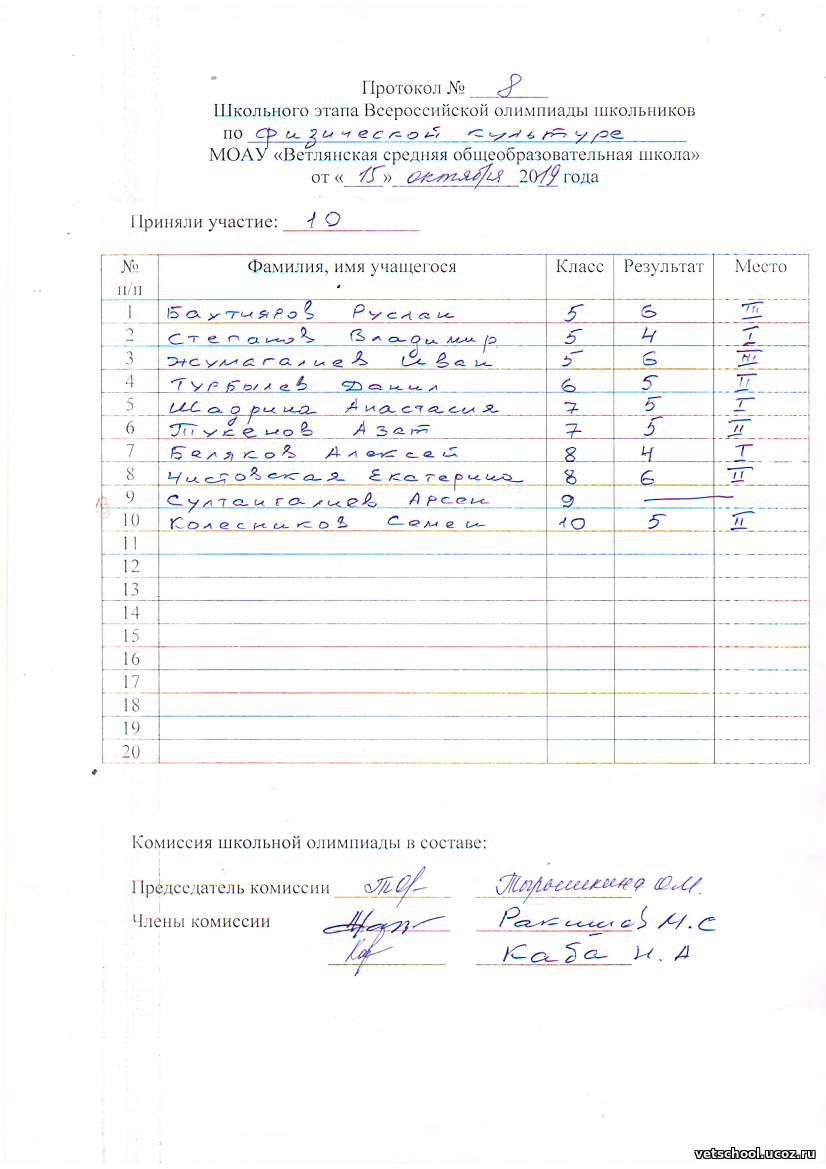 Протокол № 8
Школьного этапа Всероссийской олимпиады школьников
по физической культуре
МОАУ «Ветлянская средняя общеобразовательная школа»
от « 15 » октября 2019 года
Приняли участие: 10
№ п/п Фамилия, имя учащегося Класс Результат Место
1 Бахтияров Руслан 5 6 III
2 Степанов Владимир 5 4 I
3 Жумагалиев Иван 5 6 III
4 Турбылев Данил 6 5 II
5 Шадрина Анастасия 7 5 I
6 Тукенов Азат 7 5 II
7 Беляков Алексей 8 4 I
8 Чистовская Екатерина 8 6 II
9 Султангалиев Арсен 9 —
10 Колесников Семен 10 5 II
11
12
13
14
15
16
17
18
19
20
Комиссия школьной олимпиады в составе:
Председатель комиссии О.М.
Члены комиссии Ракишев М.С
Каба Н.А
vetschool.ucoz.ru